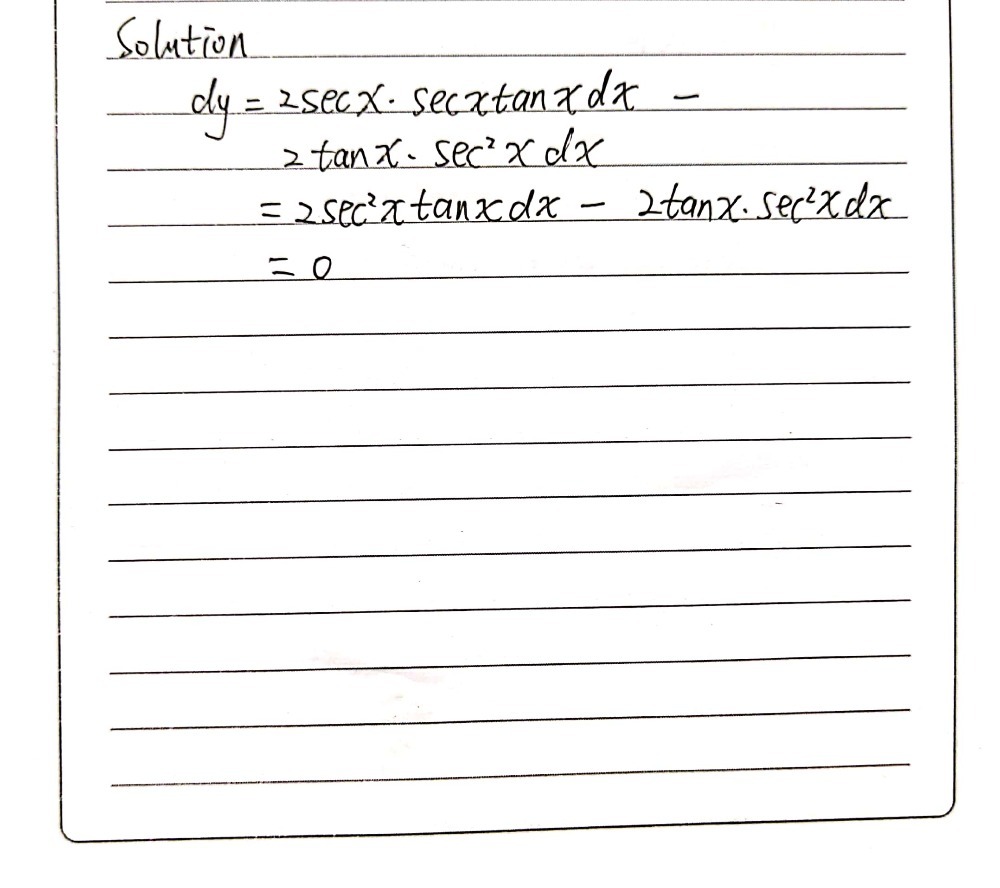 Solution
dy = 2secx · secxtanxdx −
2tanx · sec²xdx
= 2sec²xtanxdx − 2tanx·sec²xdx
= 0